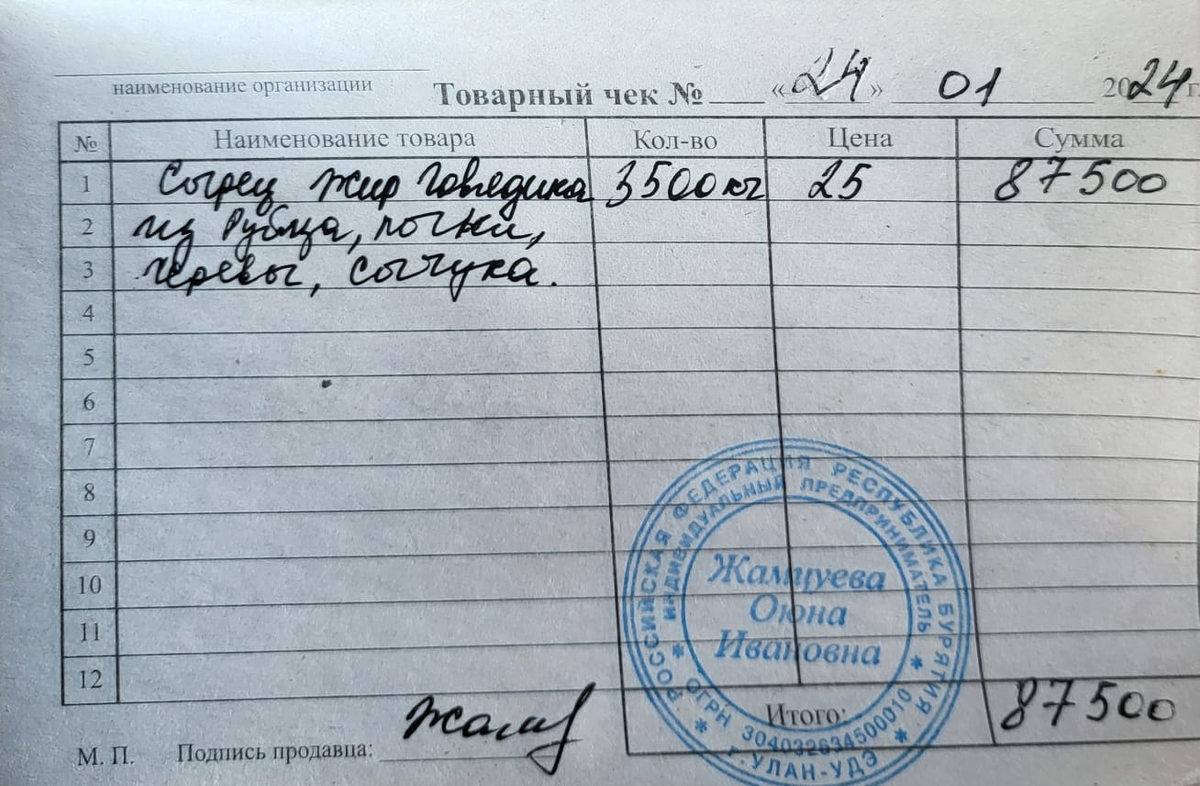 наименование организации
Товарный чек № « 24 » 01 2024 г.
№ Наименование товара Кол-во Цена Сумма
1 Сырец жир говядина 3500 кг 25 87500
2 из Рубца, почки,
3 черевы, сычуга.
4
5
6
7
8
9
10
11
12
Итого: 87500
М. П. Подпись продавца:
РОССИЙСКАЯ ФЕДЕРАЦИЯ РЕСПУБЛИКА БУРЯТИЯ
ИНДИВИДУАЛЬНЫЙ ПРЕДПРИНИМАТЕЛЬ
Жамцуева
Оюна
Ивановна
* ОГРН 304032634500010 *
* г. УЛАН-УДЭ *